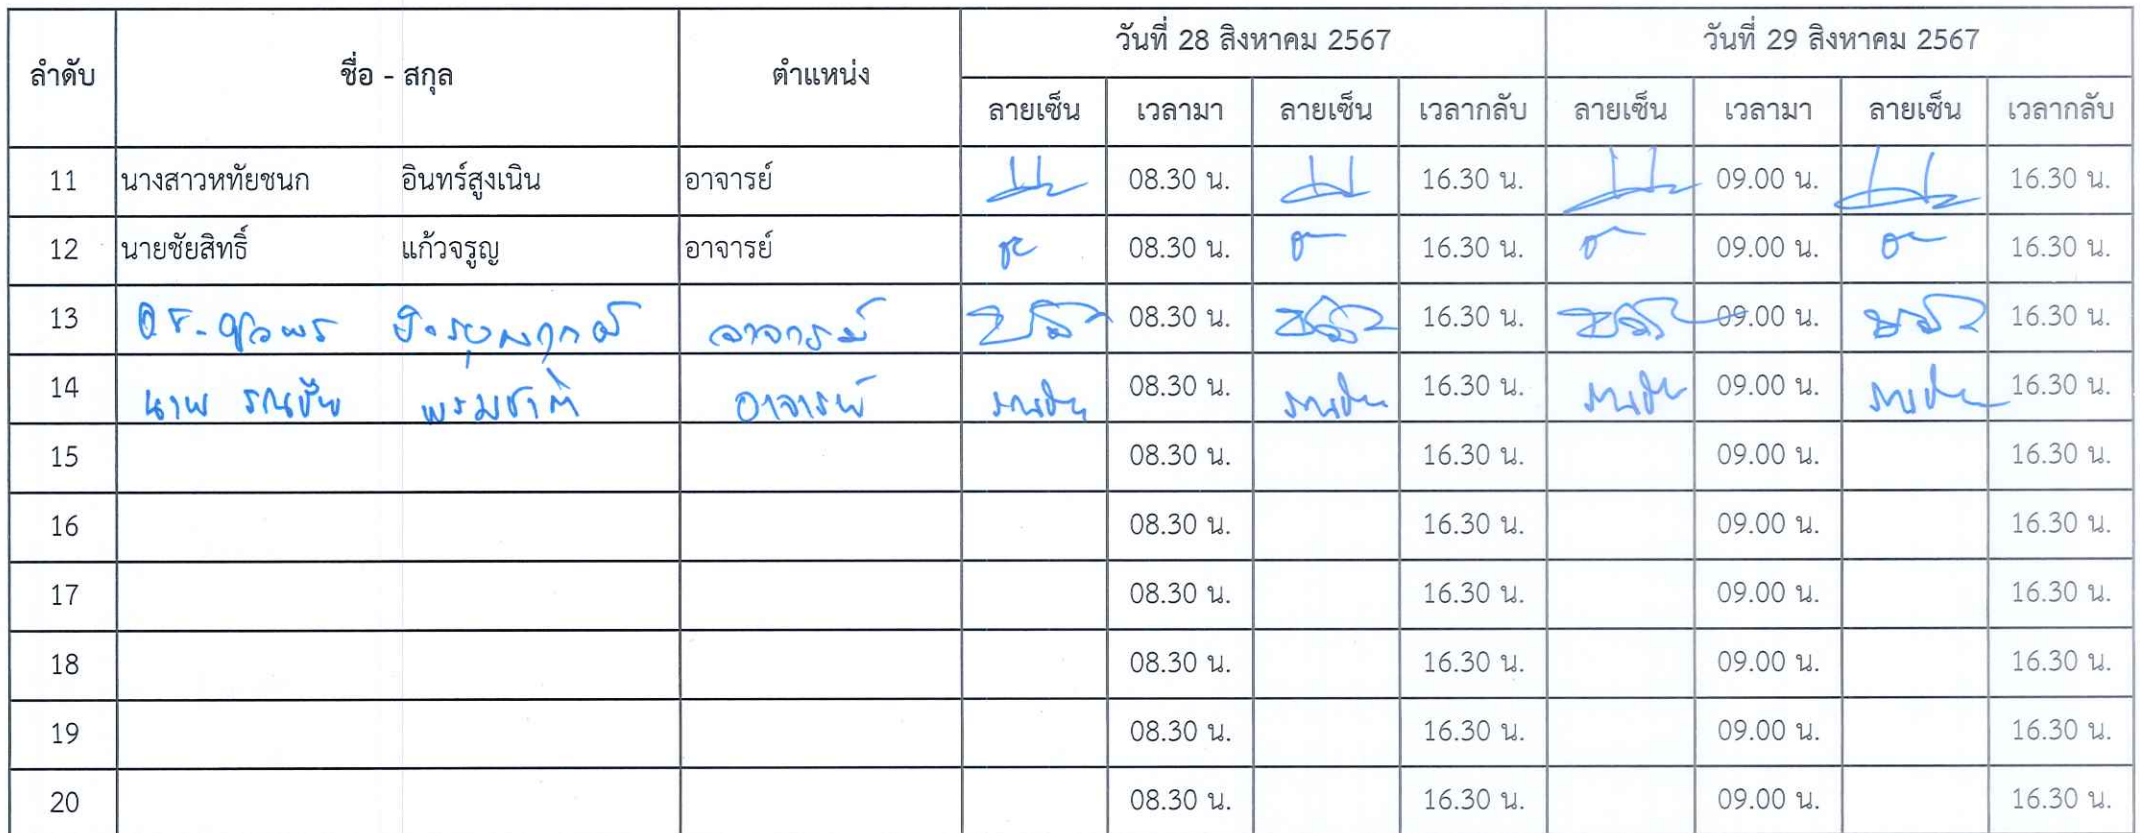 ลำดับ ชื่อ - สกุล ตำแหน่ง วันที่ 28 สิงหาคม 2567 วันที่ 29 สิงหาคม 2567
ลายเซ็น เวลามา ลายเซ็น เวลากลับ ลายเซ็น เวลามา ลายเซ็น เวลากลับ
11 นางสาวหทัยชนก อินทร์สูงเนิน อาจารย์ 08.30 น. 16.30 น. 09.00 น. 16.30 น.
12 นายชัยสิทธิ์ แก้วจรูญ อาจารย์ 08.30 น. 16.30 น. 09.00 น. 16.30 น.
13 อาจารย์ 08.30 น. 16.30 น. 09.00 น. 16.30 น.
14 นาย รณชัย พรมชาติ อาจารย์ รณชัย 08.30 น. รณชัย 16.30 น. รณชัย 09.00 น. รณชัย 16.30 น.
15 08.30 น. 16.30 น. 09.00 น. 16.30 น.
16 08.30 น. 16.30 น. 09.00 น. 16.30 น.
17 08.30 น. 16.30 น. 09.00 น. 16.30 น.
18 08.30 น. 16.30 น. 09.00 น. 16.30 น.
19 08.30 น. 16.30 น. 09.00 น. 16.30 น.
20 08.30 น. 16.30 น. 09.00 น. 16.30 น.